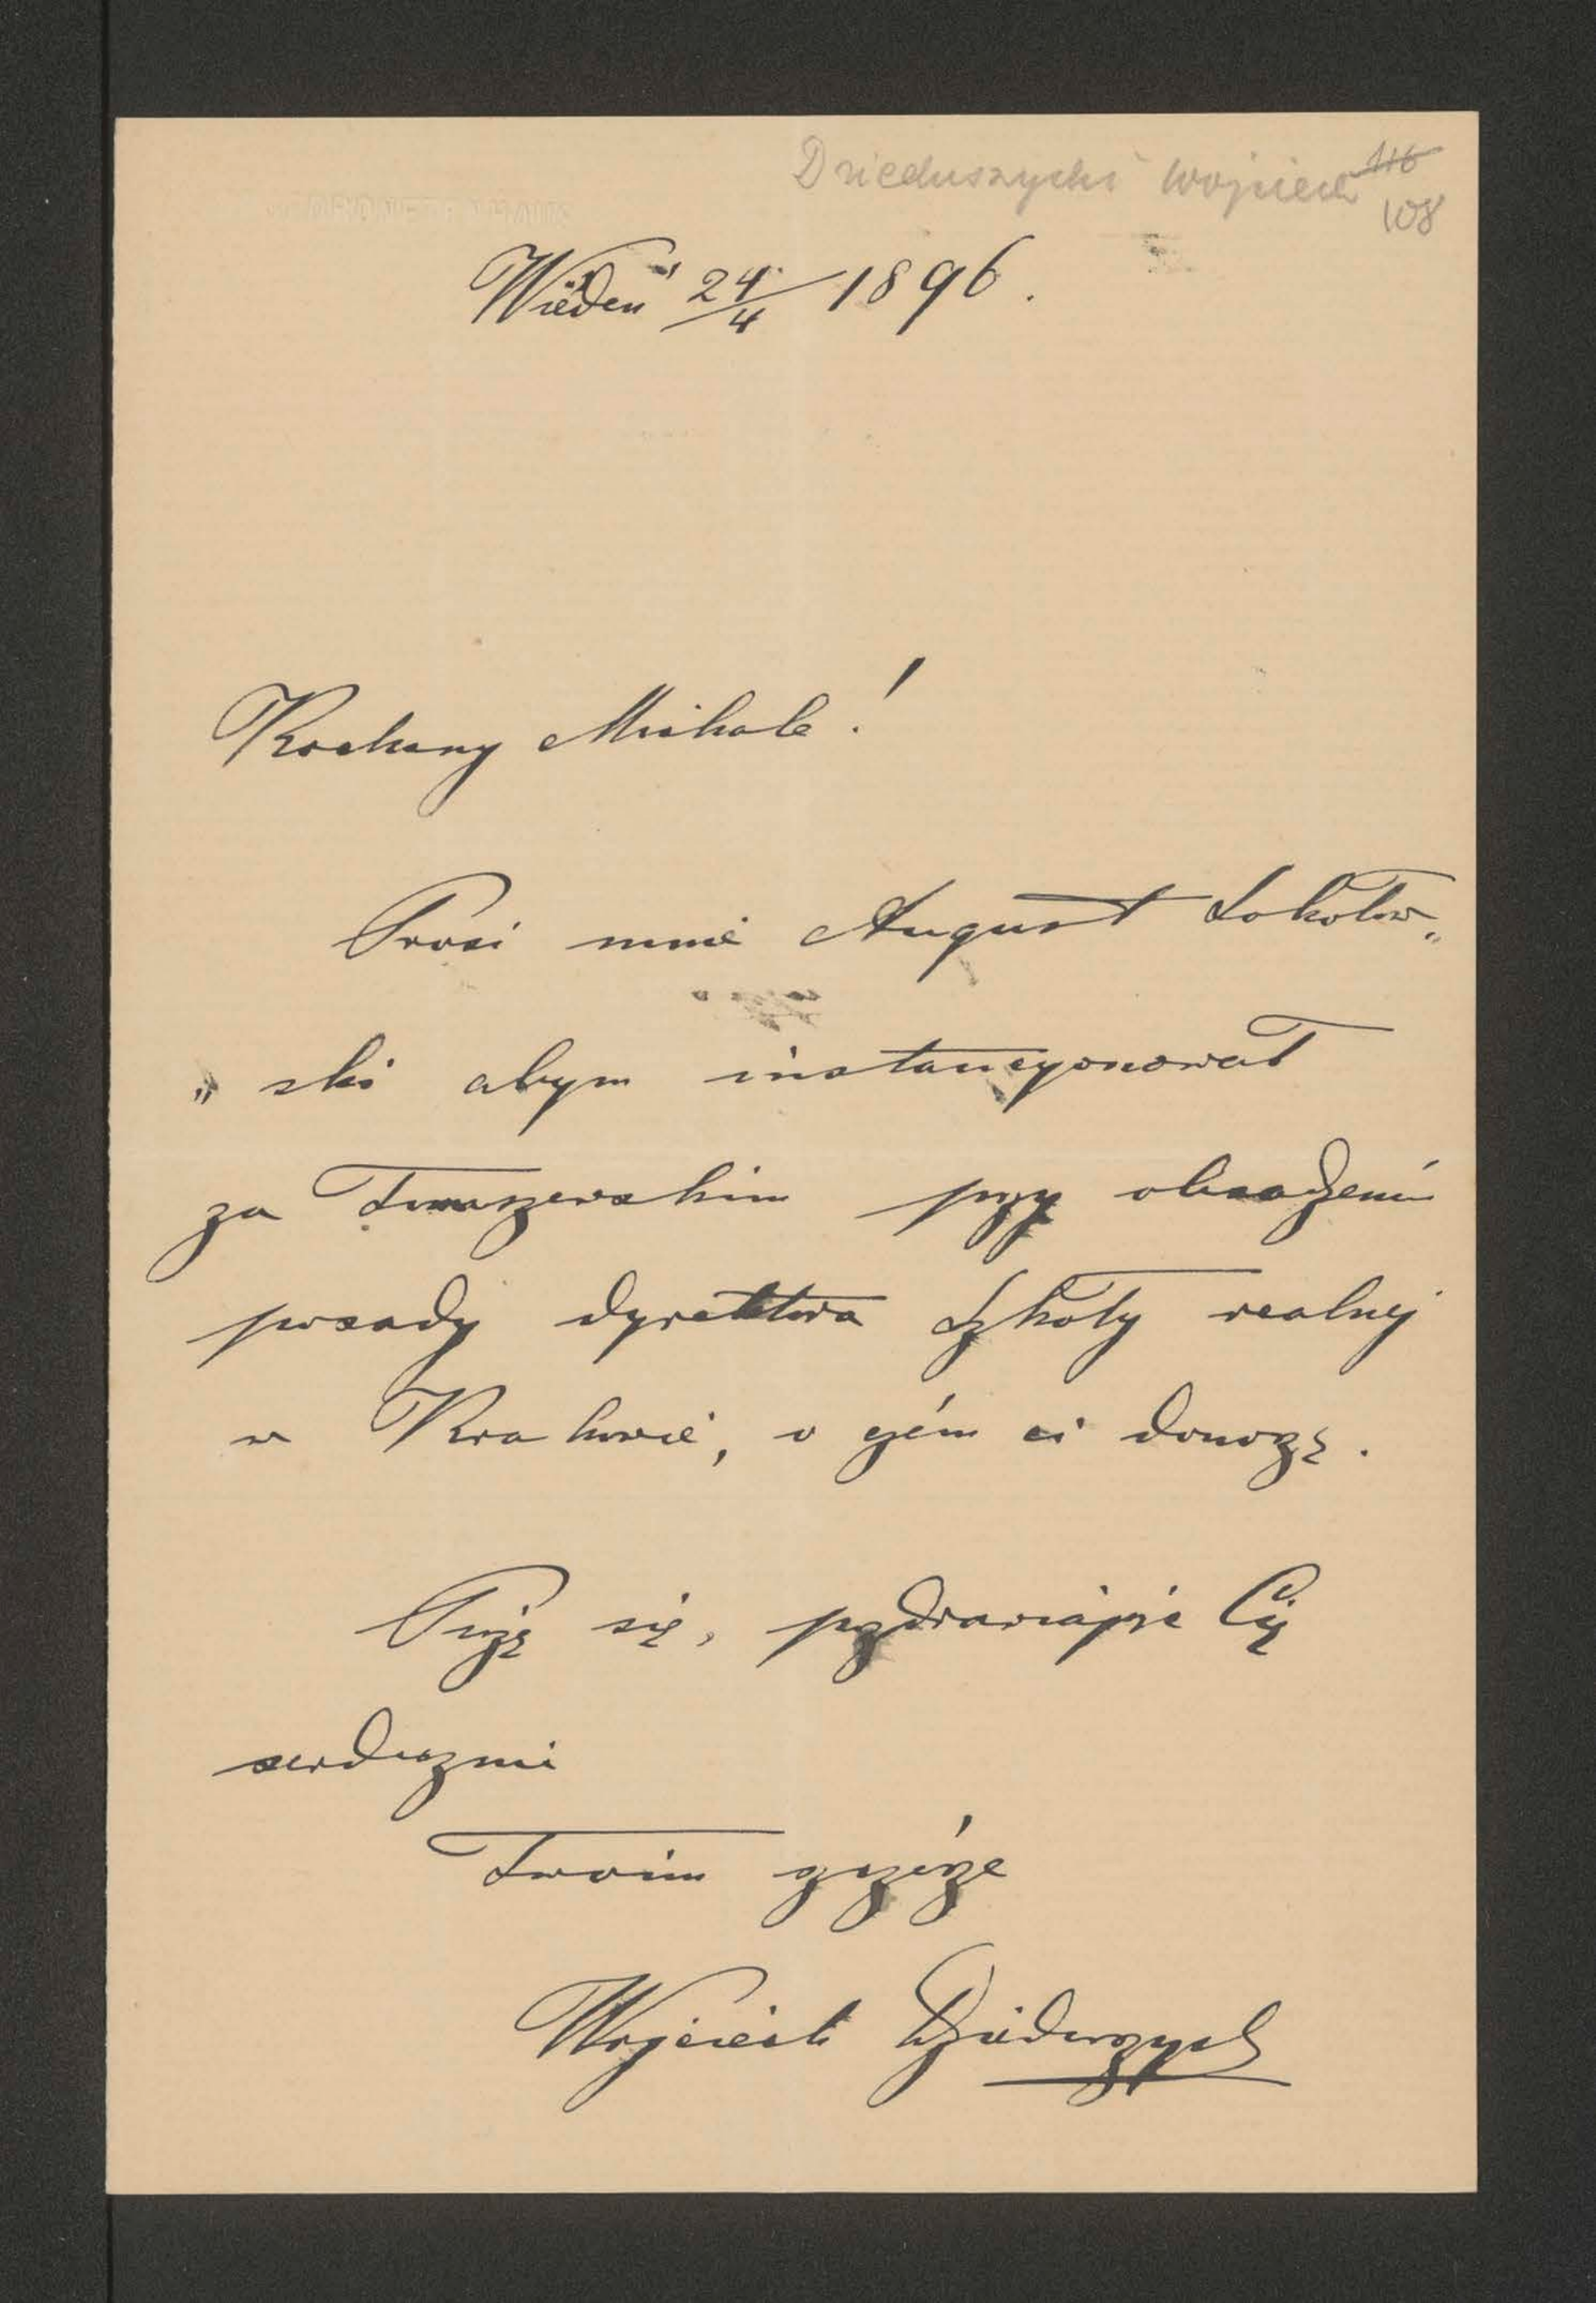 Dzieduszycki Wojciech 116
108
Wiedeń 24/4 1896.
Kochany Michale!
Prosi mnie August Sokołow„
„ski abym instancyonował
za Tomaszewskim przy obsadzeniu
posady dyrektora Szkoły realnej
w Krakowie, o czém ci donoszę.
Piszę się, pozdrawiając Cię
serdecznie
Twoim szczérze
Wojciech Dzieduszycki